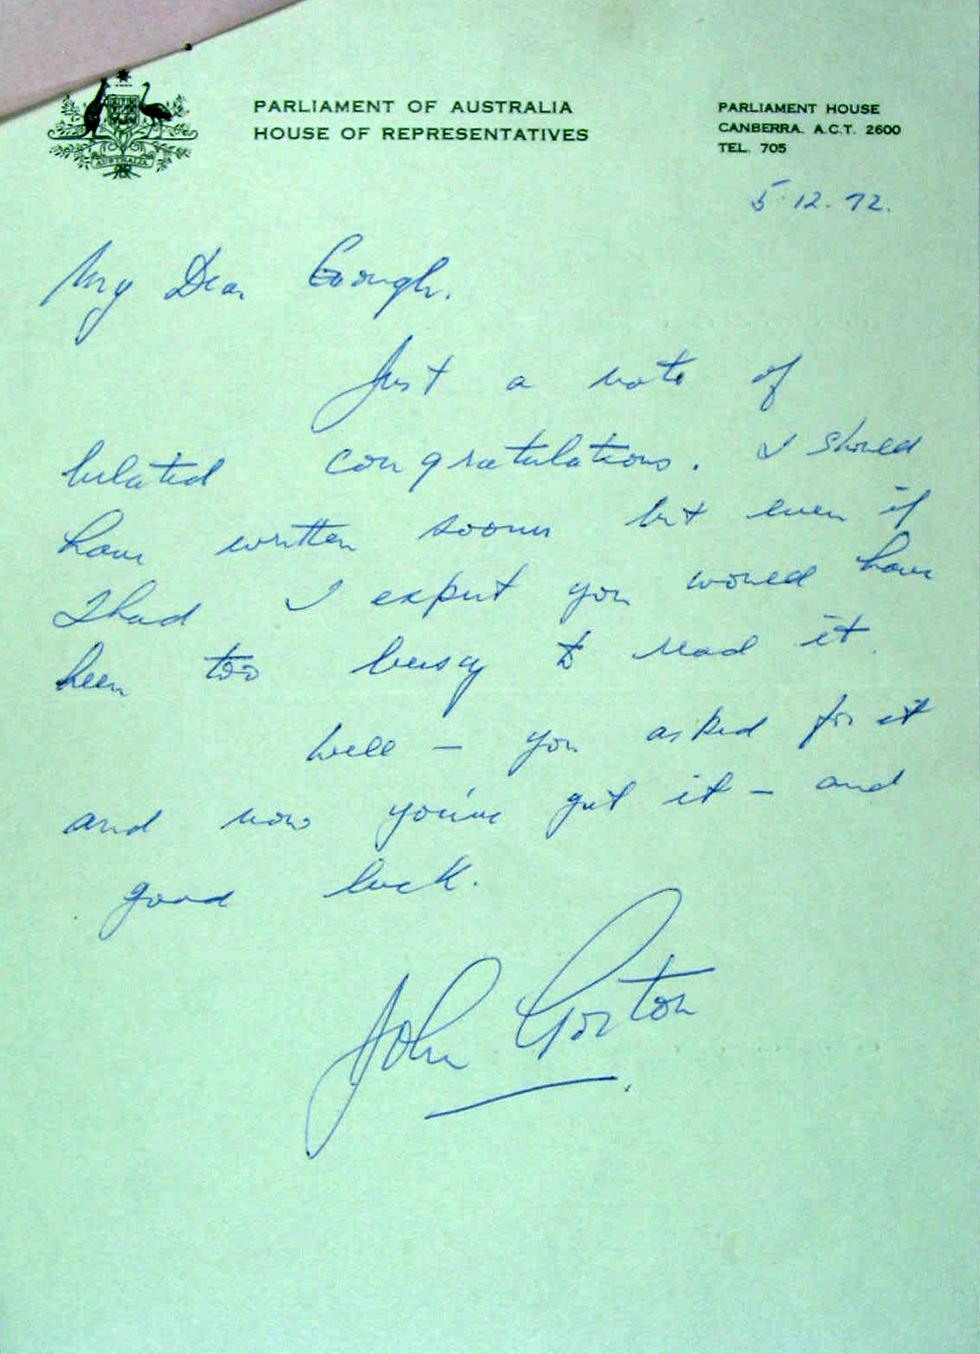 PARLIAMENT OF AUSTRALIA
HOUSE OF REPRESENTATIVES
PARLIAMENT HOUSE
CANBERRA. A.C.T. 2600
TEL. 705
AUSTRALIA
5.12.72.
My Dear Gough.
Just a note of
belated congratulations. I should
have written sooner but even if
I had I expect you would have
been too busy to read it.
Well - you asked for it
and now you've got it - and
good luck.
John Gorton